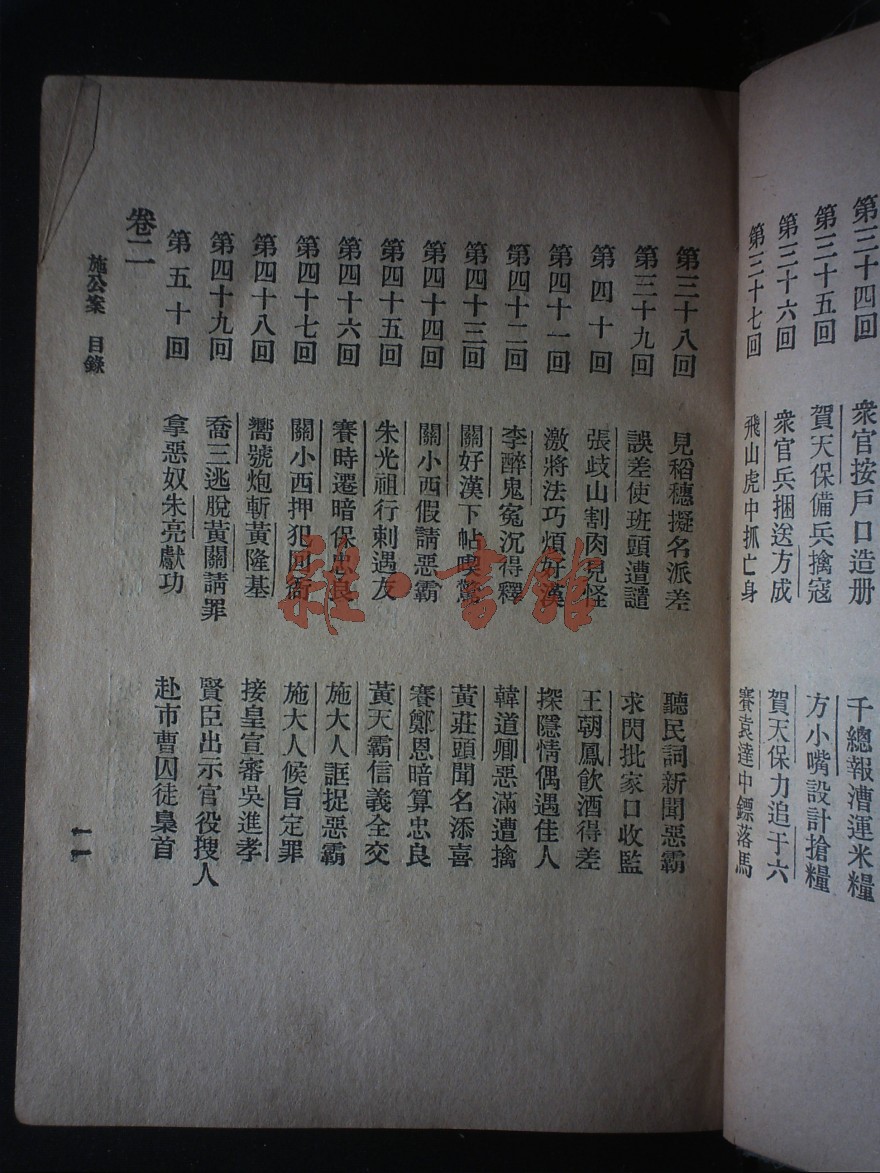 第三十四回 衆官按戶口造册 千總報漕運米糧
第三十五回 賀天保備兵擒寇 方小嘴設計搶糧
第三十六回 衆官兵捆送方成 賀天保力追于六
第三十七回 飛山虎中抓亡身 賽袁達中鏢落馬
第三十八回 見稻穗擬名派差 聽民詞新聞惡霸
第三十九回 誤差使班頭遭譴 求閃批家口收監
第四十回 張歧山割肉見怪 王朝鳳飲酒得差
第四十一回 激將法巧煩好漢 探隱情偶遇佳人
第四十二回 李醉鬼寃沉得釋 韓道卿惡滿遭擒
第四十三回 關好漢下帖喫驚 黃莊頭聞名添喜
第四十四回 關小西假請惡霸 賽鄭恩暗算忠良
第四十五回 朱光祖行刺遇友 黃天霸信義全交
第四十六回 賽時遷暗保忠良 施大人誆捉惡霸
第四十七回 關小西押犯回衙 施大人候旨定罪
第四十八回 嚮號炮斬黃隆基 接皇宣審吳進孝
第四十九回 喬三逃脫黃關請罪 賢臣出示官役搜人
第五十回 拿惡奴朱亮獻功 赴市曹囚徒梟首
卷二
施公案 目錄
一一
雜·書館